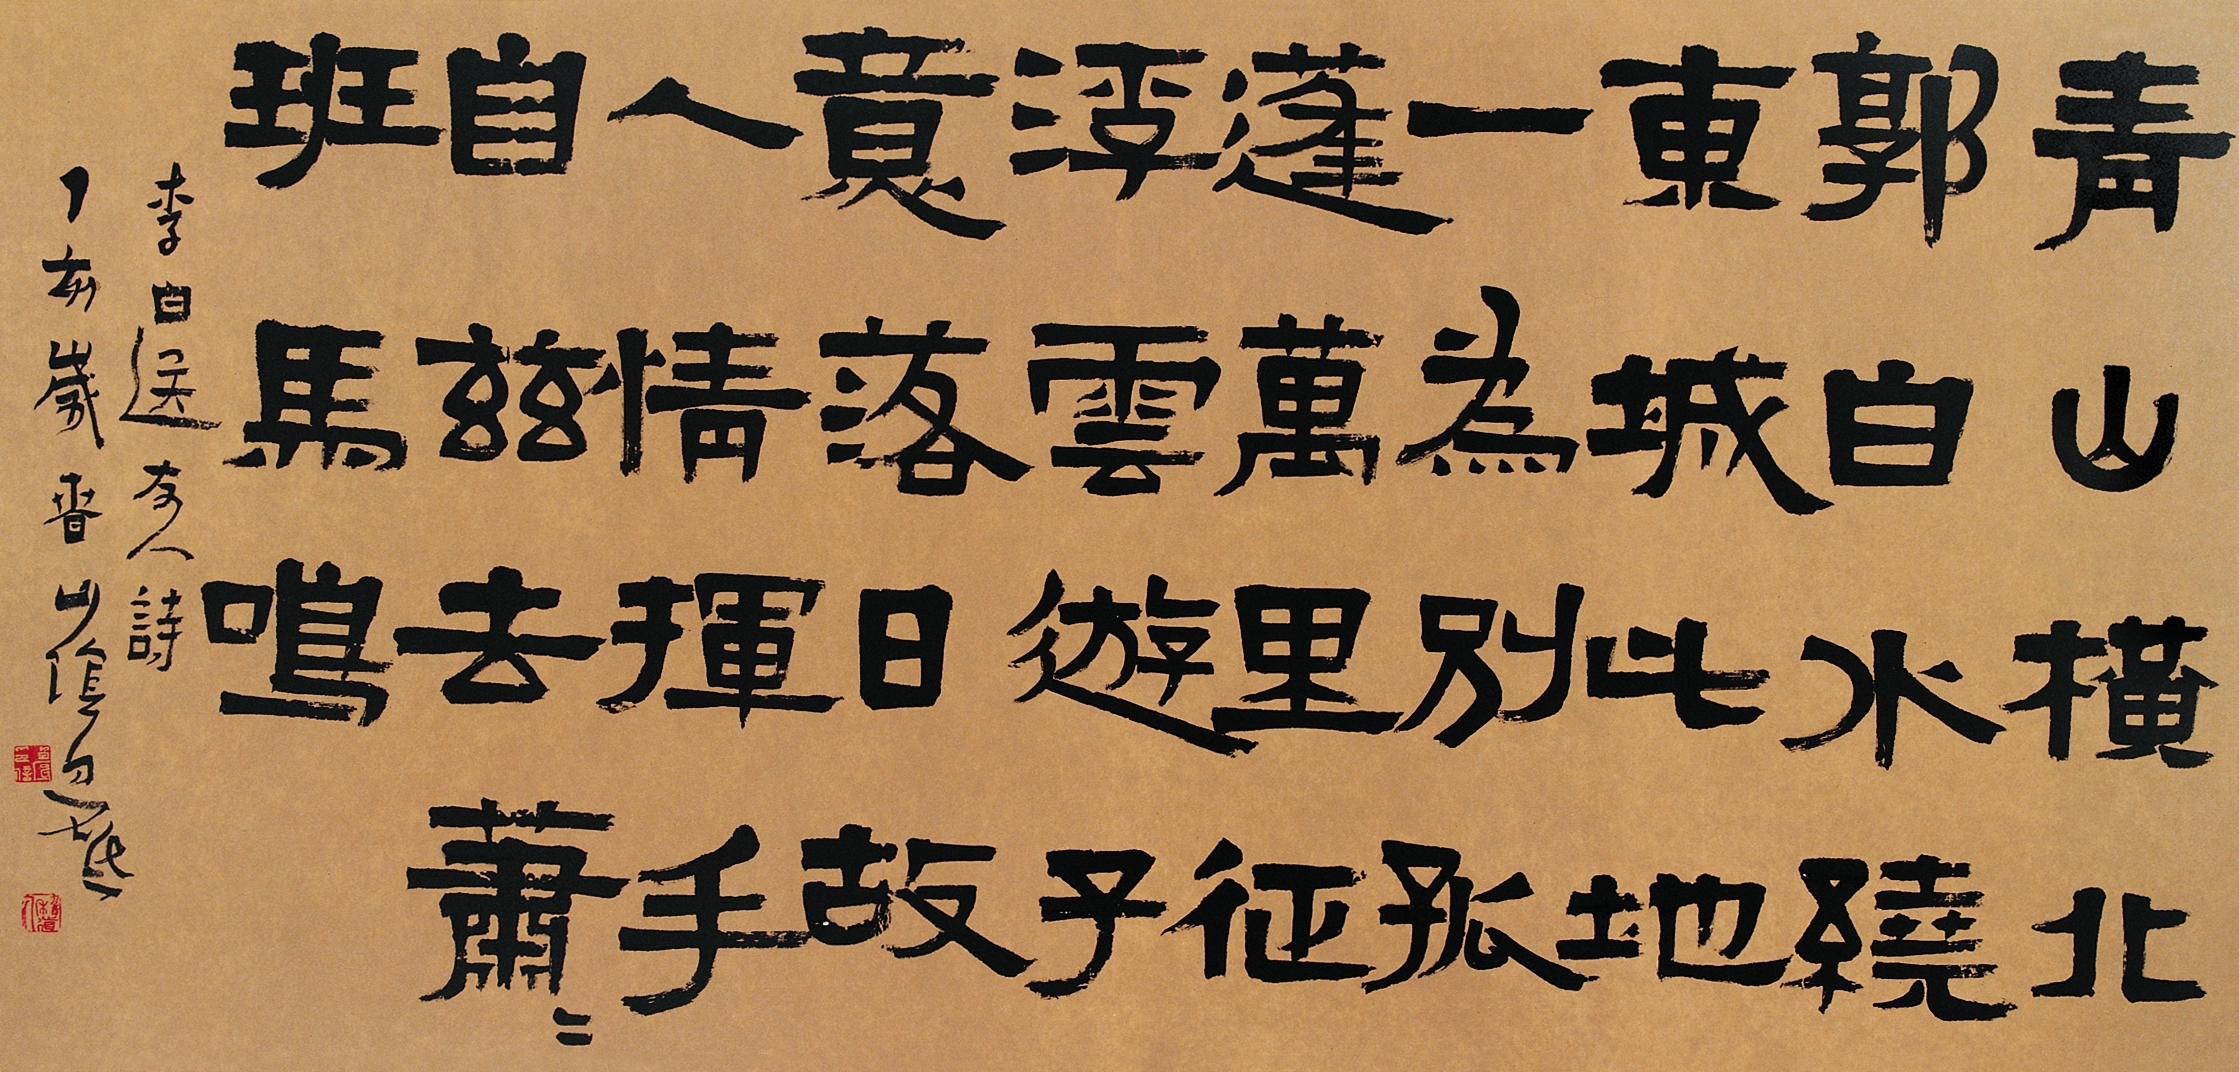 青山橫北
郭白水繞
東城此地
一為別孤
蓬萬里征
浮雲遊子
意落日故
人情揮手
自茲去蕭〻
班馬鳴
李白送友人詩
丁亥歲春山陰